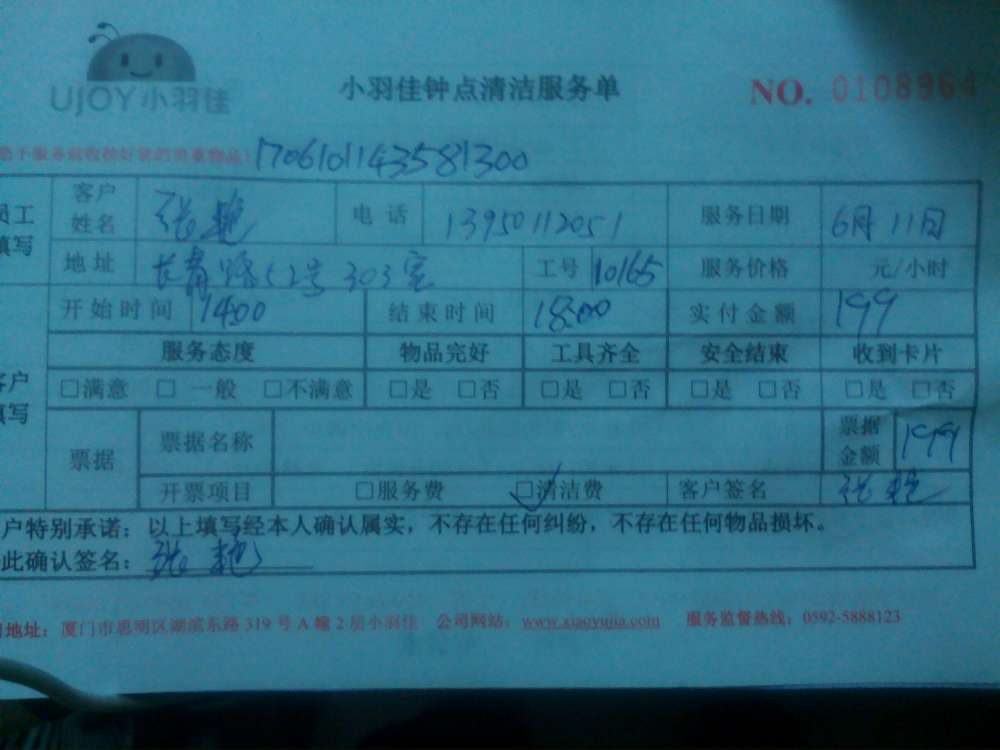 UJOY小羽佳
小羽佳钟点清洁服务单
NO. 0108964
于服务前收拾好您的贵重物品！
1706101143581300
员工填写
客户姓名 张艳 电话 13950112051 服务日期 6月11日
地址 长青路52号303室 工号 10165 服务价格 元/小时
开始时间 1400 结束时间 18:00 实付金额 199
客户填写
服务态度 物品完好 工具齐全 安全结束 收到卡片
□满意 □一般 □不满意 □是 □否 □是 □否 □是 □否 □是 □否
票据 票据名称 票据金额 199
开票项目 □服务费 □清洁费 客户签名 张艳
户特别承诺：以上填写经本人确认属实，不存在任何纠纷，不存在任何物品损坏。
此确认签名：张艳
地址：厦门市思明区湖滨东路319号A幢2层小羽佳 公司网站：www.xiaoyujia.com 服务监督热线：0592-5888123